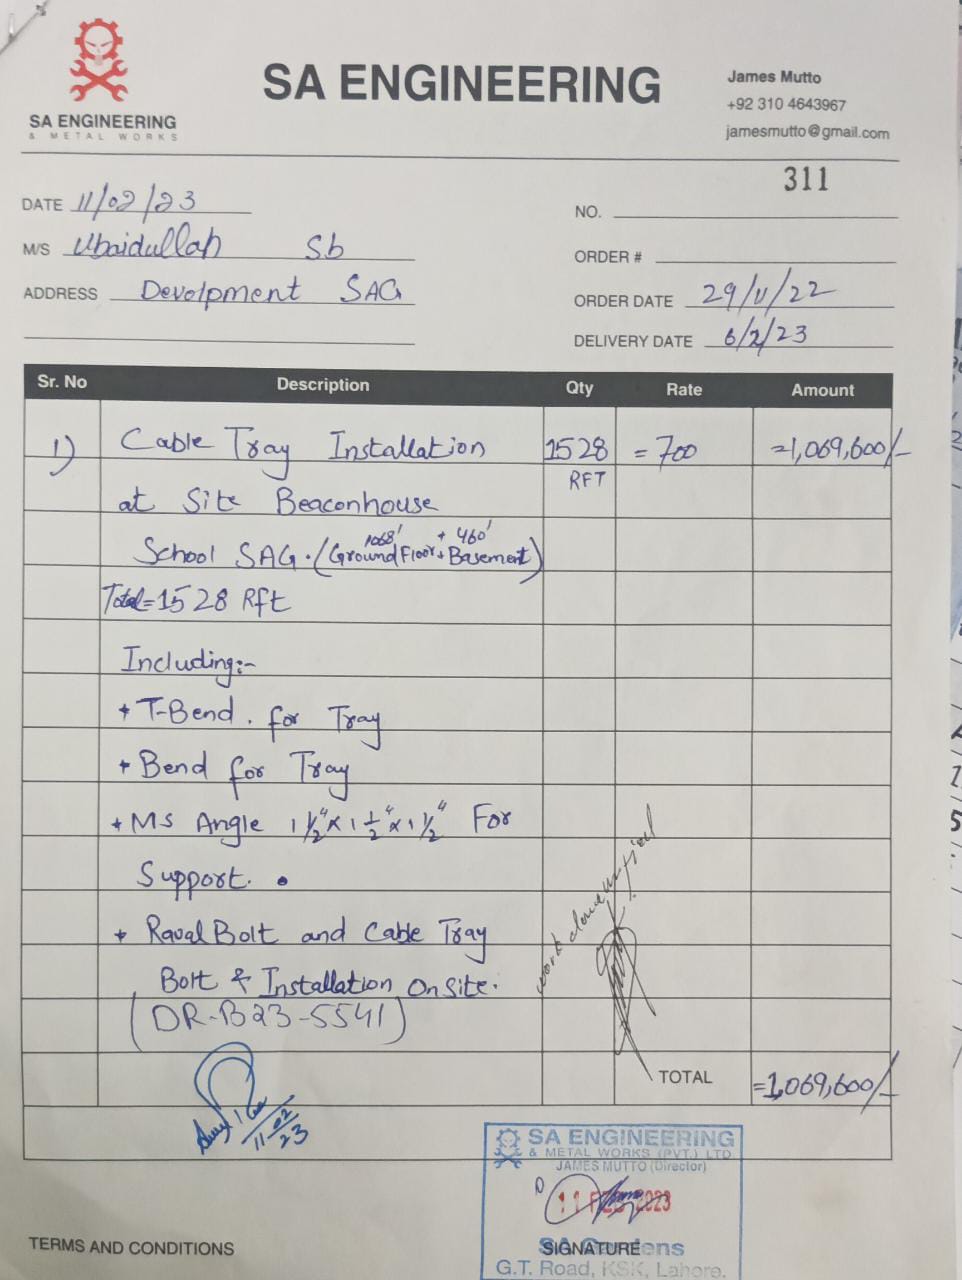 SA ENGINEERING
& METAL WORKS
SA ENGINEERING
James Mutto
+92 310 4643967
jamesmutto@gmail.com
311
DATE 11/02/23
NO.
M/S Ubaidullah Sb
ORDER #
ADDRESS Devolpment SAG
ORDER DATE 29/11/22
DELIVERY DATE 6/2/23
Sr. No Description Qty Rate Amount
1) Cable Tray Installation 1528 = 700 =1,069,600/-
RFT
at Site Beaconhouse
1068' + 460'
School SAG. (Ground Floor + Basement)
Total=1528 Rft
Including:-
+ T-Bend. for Tray
+ Bend for Tray
+ MS Angle 1 1/2" x 1 1/2" x 1 1/2" For
Support.
+ Raval Bolt and Cable Tray
Bolt & Installation On Site.
(DR-B23-5541)
work done
TOTAL =1,069,600/-
11-02
23
SA ENGINEERING
& METAL WORKS (PVT.) LTD
JAMES MUTTO (Director)
11 FEB 2023
TERMS AND CONDITIONS
SIGNATURE
SA Gardens
G.T. Road, KSK, Lahore.